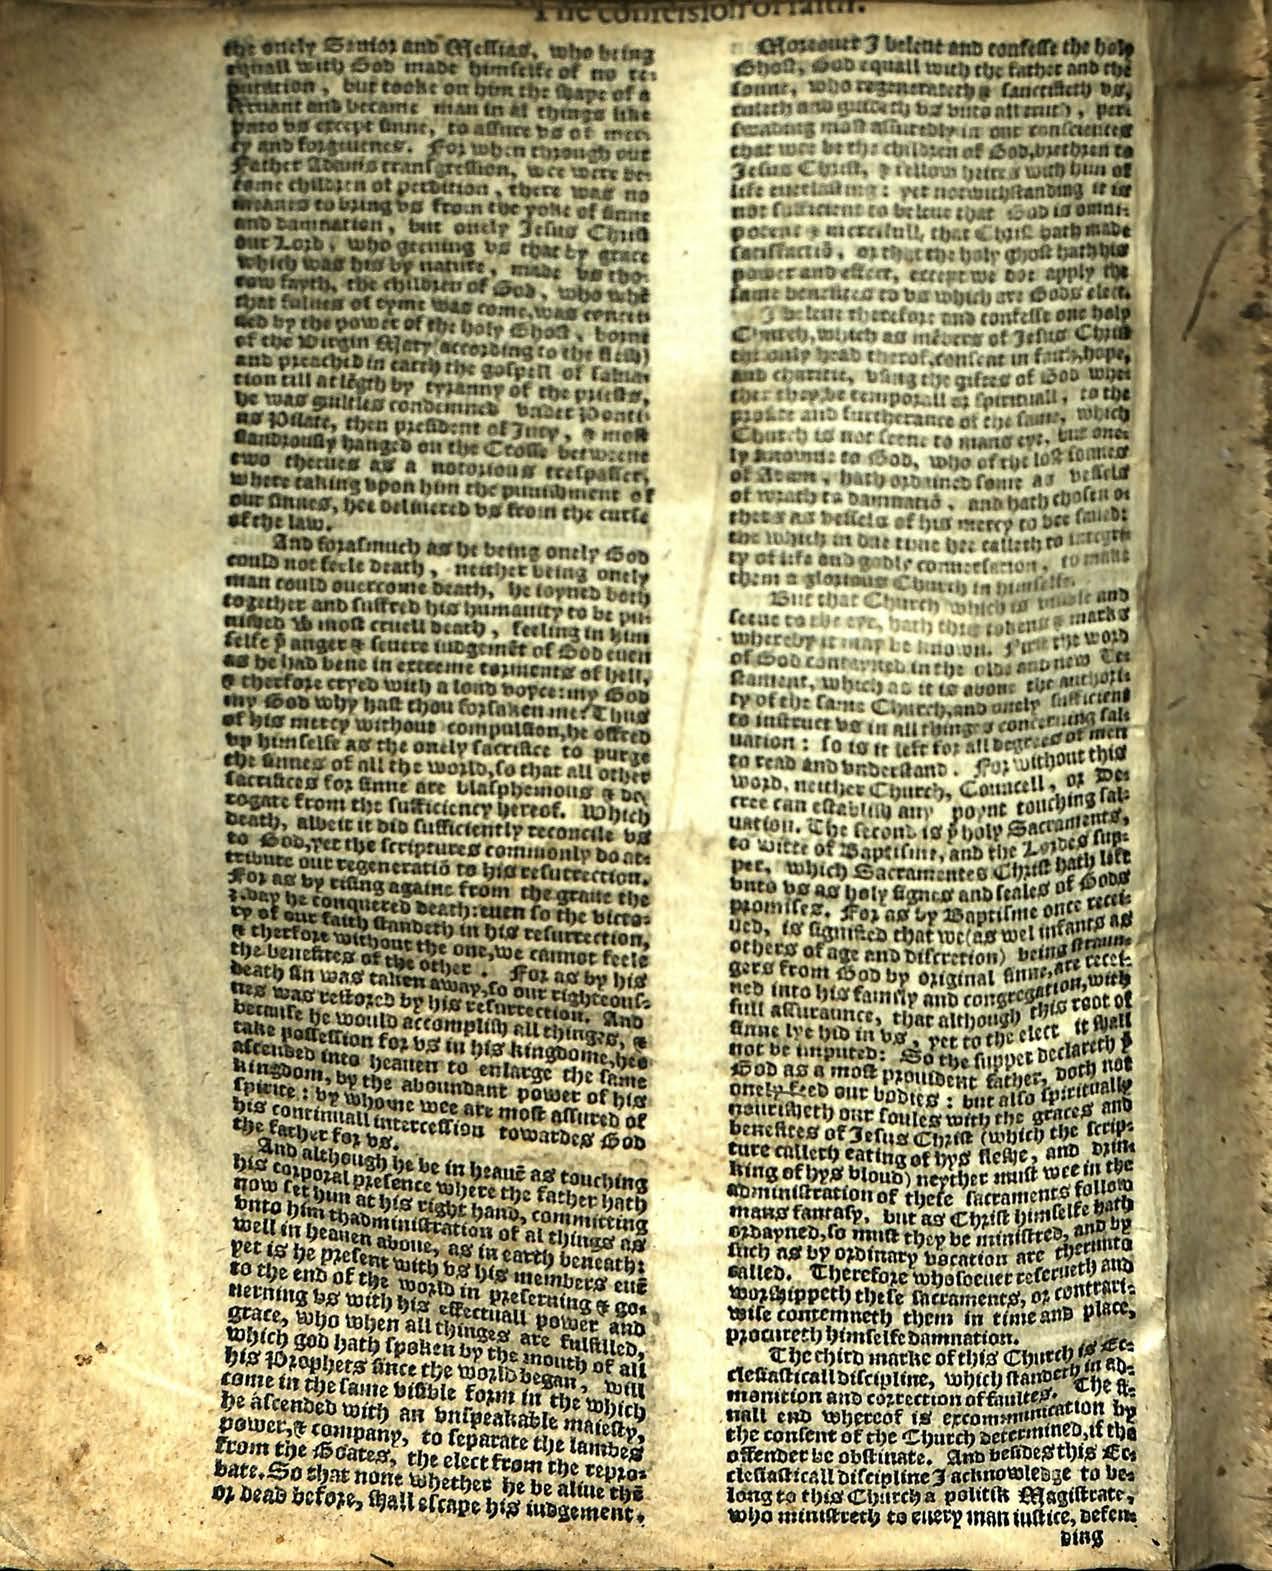 The confession of faith.
the onely Sauior and Messias, who being
equall with God made himselfe of no re-
putation, but tooke on him the shape of a
seruant and became man in al things like
vnto vs except sinne, to assure vs of mer-
cy and forgiuenes. For when through our
Father Adams transgression, wee were be-
come children of perdition, there was no
meanes to bring vs from the yoke of sinne
and damnation, but onely Jesus Christ
our Lord, who geeuing vs that by grace
which was his by nature, made vs tho-
row fayth, the children of God, who whē
that fulnes of tyme was come, was concei-
ued by the power of the holy Ghost, borne
of the Virgin Mary (according to the flesh)
and preached in earth the gospell of salua-
tion till at lēgth by tyranny of the priests,
he was guiltles condemned vnder Ponti-
us Pilate, then president of Jury, & most
slandrously hanged on the Crosse betweene
two theeues as a notorious trespasser,
where taking vpon him the punishment of
our sinnes, hee deliuered vs from the curse
of the law.
And forasmuch as he being onely God
could not feele death, neither being onely
man could ouercome death, he ioyned both
together and suffred his humanity to be pu-
nished wͭ most cruell death, feeling in him
selfe yͤ anger & seuere iudgemēt of God euen
as he had bene in extreme torments of hell,
& therfore cryed with a loud voyce: my God
my God why hast thou forsaken me? Thus
of his mercy without compulsion, he offred
vp himselfe as the onely sacrifice to purge
the sinnes of all the world, so that all other
sacrifices for sinne are blasphemous & de-
rogate from the sufficiency hereof. Which
death, albeit it did sufficiently reconcile vs
to God, yet the scriptures commonly do at-
tribute our regeneratiō to his resurrection.
For as by rising againe from the graue the
3. day he conquered death: euen so the victo-
ry of our faith standeth in his resurrection,
& therfore without the one, we cannot feele
the benefites of the other. For as by his
death sin was taken away, so our righteous-
nes was restored by his resurrection. And
because he would accomplish all thinges, &
take possession for vs in his kingdome, hee
ascended into heauen to enlarge the same
kingdom, by the aboundant power of his
spirite: by whome wee are most assured of
his continuall intercession towardes God
the father for vs.
And although he be in heauē as touching
his corporal presence where the father hath
now set him at his right hand, committing
vnto him thadministration of al things as
well in heauen aboue, as in earth beneath:
yet is he present with vs his members euē
to the end of the world in preseruing & go-
uerning vs with his effectuall power and
grace, who when all thinges are fulfilled,
which god hath spoken by the mouth of all
his Prophets since the world began, will
come in the same visible form in the which
he ascended with an vnspeakable maiesty,
power, & company, to separate the lambes
from the Goates, the elect from the repro-
bate. So that none whether he be aliue thē
or dead before, shall escape his iudgement.
Moreouer I beleue and confesse the holy
Ghost, God equall with the father and the
sonne, who regenerateth & sanctifieth vs,
ruleth and guideth vs vnto all truth, per-
swading most assuredly in our consciences
that wee be the children of God, brethren to
Jesus Christ, & fellow heires with him of
life euerlasting: yet notwithstanding it is
not sufficient to beleue that God is omni-
potent & mercifull, that Christ hath made
satisfactiō, or that the holy ghost hath his
power and effect, except we doe apply the
same benefites to vs which are Gods elect.
I beleue therefore and confesse one holy
Church, which as mēbers of Jesus Christ
the only head therof, consent in faith, hope,
and charitie, vsing the giftes of God whe-
ther they be temporall or spirituall, to the
profite and furtherance of the same, which
Church is not seene to mans eye, but one-
ly knowne to God, who of the lost sonnes
of Adam, hath ordained some as vessels
of wrath to damnatiō, and hath chosen o-
thers as vessels of his mercy to bee saued:
the which in due time hee calleth to integri-
ty of life and godly conuersation, to make
them a glorious Church in himselfe.
But that Church which is visible and
seene to the eye, hath three tokens & marks
whereby it may be known. First the word
of God contayned in the olde and new Te-
stament, which as it is aboue the authori-
ty of the same Church, and onely sufficient
to instruct vs in all things concerning sal-
uation: so is it left for all degrees of men
to read and vnderstand. For without this
word, neither Church, Councell, or De-
cree can establish any poynt touching sal-
uation. The second is yͤ holy Sacraments,
to witte of Baptisme, and the Lordes sup-
per, which Sacramentes Christ hath left
vnto vs as holy signes and seales of Gods
promises. For as by Baptisme once recei-
ued, is signified that we (as wel infants as
others of age and discretion) being straun-
gers from God by original sinne, are recei-
ued into his family and congregation, with
full assuraunce, that although this root of
sinne lye hid in vs, yet to the elect it shall
not be imputed: So the supper declareth yͭ
God as a most prouident father, doth not
onely feed our bodies: but also spiritually
nourisheth our soules with the graces and
benefites of Jesus Christ (which the scrip-
ture calleth eating of hys fleshe, and drin-
king of hys bloud) neyther must wee in the
administration of these sacraments follow
mans fantasy, but as Christ himselfe hath
ordayned, so must they be ministred, and by
such as by ordinary vocation are therunto
called. Therefore whosoeuer reserueth and
worshippeth these sacraments, or contrari-
wise contemneth them in time and place,
procureth himselfe damnation.
The third marke of this Church is Ec-
clesiasticall discipline, which standeth in ad-
monition and correction of faultes. The fi-
nall end whereof is excommunication by
the consent of the Church determined, if the
offender be obstinate. And besides this Ec-
clesiasticall discipline I acknowledge to be-
long to this Church a politik Magistrate,
who ministreth to euery man iustice, defen-
ding